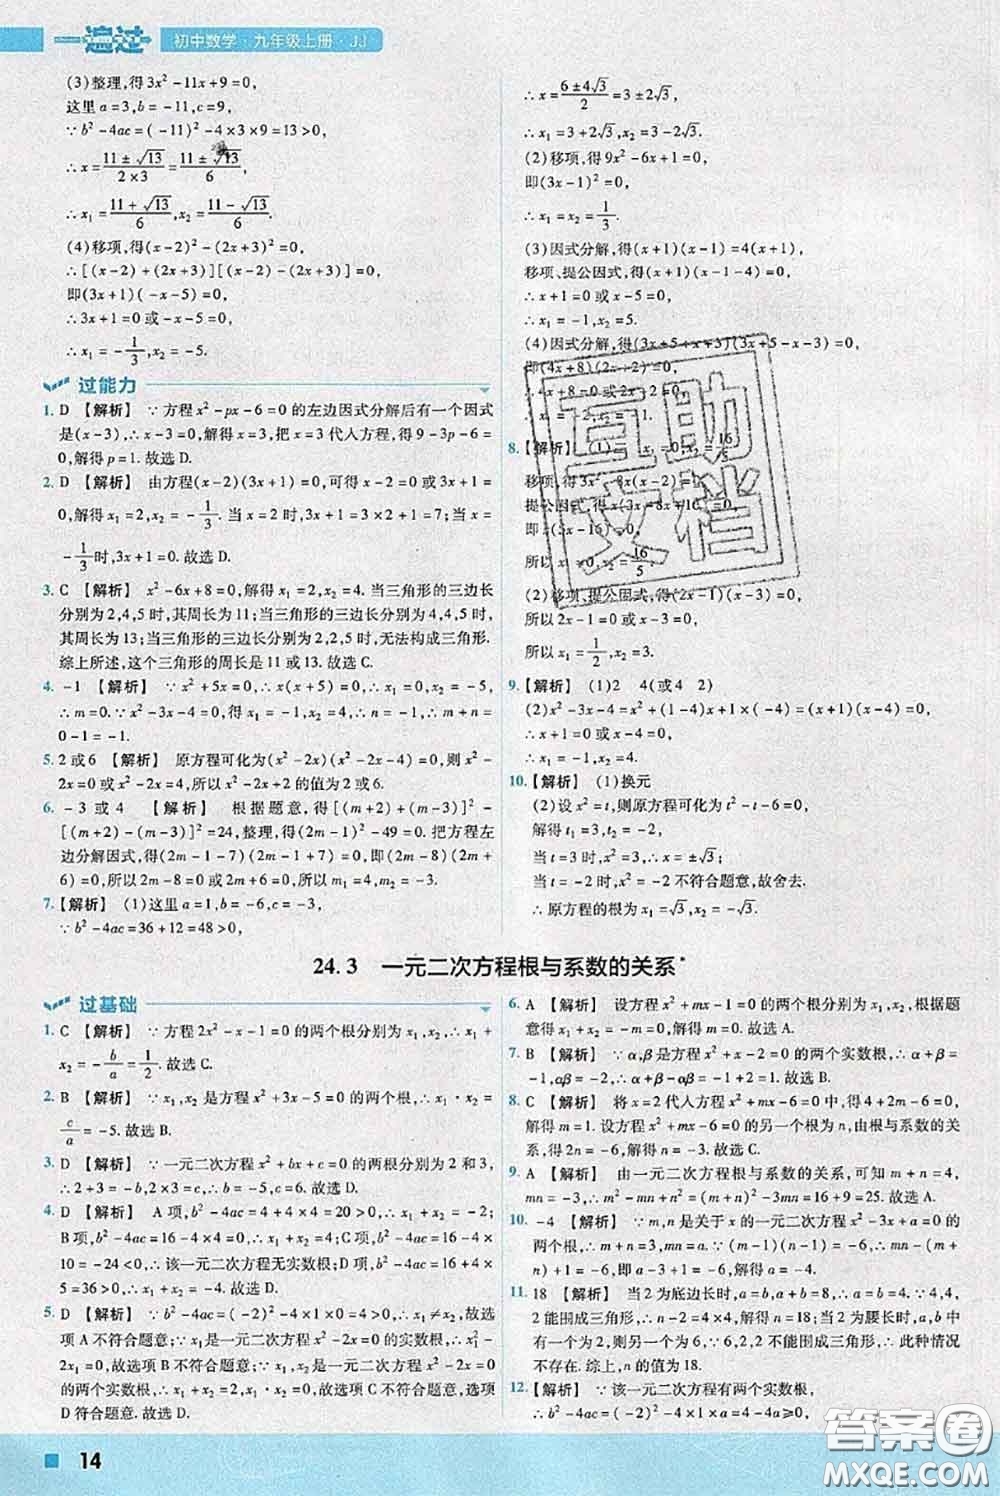 一遍过 初中数学·九年级上册·JJ
(3)整理,得3x²-11x+9=0,
这里a=3,b=-11,c=9,
∵b²-4ac=(-11)²-4×3×9=13>0,
∴x=(11±√13)/(2×3)=(11±√13)/6,
∴x₁=(11+√13)/6,x₂=(11-√13)/6.
(4)移项,得(x-2)²-(2x+3)²=0,
∴[(x-2)+(2x+3)][(x-2)-(2x+3)]=0,
即(3x+1)(-x-5)=0,
∴3x+1=0或-x-5=0,
∴x₁=-1/3,x₂=-5.
过能力
1. D 【解析】 ∵方程x²-px-6=0的左边因式分解后有一个因式
是(x-3),∴x-3=0,解得x=3,把x=3代入方程,得9-3p-6=
0,解得p=1.故选D.
2. D 【解析】 由方程(x-2)(3x+1)=0,可得x-2=0或3x+1=
0,解得x₁=2,x₂=-1/3.当x=2时,3x+1=3×2+1=7;当x=
-1/3时,3x+1=0.故选D.
3. C 【解析】 x²-6x+8=0,解得x₁=2,x₂=4.当三角形的三边长
分别为2,4,5时,其周长为11;当三角形的三边长分别为4,4,5时,
其周长为13;当三角形的三边长分别为2,2,5时,无法构成三角形.
综上所述,这个三角形的周长是11或13.故选C.
4. -1 【解析】 ∵x²+5x=0,∴x(x+5)=0,∴x=0,x=-5,
∴m=0.∵x²-3x-4=0,得x₁=-1,x₂=4,∴n=-1,∴m+n=
0-1=-1.
5. 2或6 【解析】 原方程可化为(x²-2x)(x²-2x-4)=0,则x²-
2x=0或x²-2x=4,所以x²-2x+2的值为2或6.
6. -3或4 【解析】 根据题意,得[(m+2)+(m-3)]²-
[(m+2)-(m-3)]²=24,整理,得(2m-1)²-49=0.把方程左
边分解因式,得(2m-1-7)(2m-1+7)=0,即(2m-8)(2m+
6)=0,所以2m-8=0或2m+6=0,所以m₁=4,m₂=-3.
7. 【解析】 (1)这里a=1,b=-6,c=-3,
∵b²-4ac=36+12=48>0,
∴x=(6±4√3)/2=3±2√3,
∴x₁=3+2√3,x₂=3-2√3.
(2)移项,得9x²-6x+1=0,
即(3x-1)²=0,
∴x₁=x₂=1/3.
(3)因式分解,得(x+1)(x-1)=4(x+1),
移项、提公因式,得(x+1)(x-1-4)=0,
∴x+1=0或x-5=0,
∴x₁=-1,x₂=5.
(4)因式分解,得(3x+5+x+3)(3x+5-x-3)=0,
即(4x+8)(2x+2)=0,
∴4x+8=0或2x+2=0,
∴x₁=-2,x₂=-1.
8. 【解析】 (1) x₁=0,x₂=16/5
移项,得3x²-8x(x-2)=0,
提公因式,得x(3x-8x+16)=0,
即x(5x-16)=0,
所以x₁=0,x₂=16/5.
(2)移项、提公因式,得(2x-1)(x-3)=0,
所以2x-1=0或x-3=0,
所以x₁=1/2,x₂=3.
9. 【解析】 (1)2 4(或4 2)
(2)x²-3x-4=x²+(1-4)x+1×(-4)=(x+1)(x-4)=0,
∴x+1=0或x-4=0,
∴x₁=-1,x₂=4.
10. 【解析】 (1)换元
(2)设x²=t,则原方程可化为t²-t-6=0,
解得t₁=3,t₂=-2,
当t=3时,x²=3,∴x=±√3;
当t=-2时,x²=-2不符合题意,故舍去.
∴原方程的根为x₁=√3,x₂=-√3.
互助文档
24.3 一元二次方程根与系数的关系*
过基础
1. C 【解析】 ∵方程2x²-x-1=0的两个根分别为x₁,x₂,∴x₁+
x₂=-b/a=1/2.故选C.
2. B 【解析】 ∵x₁,x₂是方程x²+3x-5=0的两个根,∴x₁·x₂=
c/a=-5.故选B.
3. D 【解析】 ∵一元二次方程x²+bx+c=0的两根分别为2和3,
∴2+3=-b,2×3=c,∴b=-5,c=6.故选D.
4. D 【解析】 A项,b²-4ac=4+4×4=20>0,∴x₁+x₂=-2;
B项,b²-4ac=16-4×4=0,∴x₁+x₂=4;C项,b²-4ac=16-4×
10=-24<0,∴该一元二次方程无实数根;D项,b²-4ac=16+4×
5=36>0,∴x₁+x₂=4.故选D.
5. D 【解析】 ∵b²-4ac=(-2)²-4×1×0=4>0,∴x₁≠x₂,故选
项A不符合题意;∵x₁是一元二次方程x²-2x=0的实数根,∴x₁²-
2x₁=0,故选项B不符合题意;∵x₁,x₂是一元二次方程x²-2x=0
的两个实数根,∴x₁+x₂=2,x₁·x₂=0,故选项C不符合题意,选项
D符合题意.故选D.
6. A 【解析】 设方程x²+mx-1=0的两个根分别为x₁,x₂,根据题
意得x₁+x₂=-m=0,解得m=0.故选A.
7. B 【解析】 ∵α,β是方程x²+x-2=0的两个实数根,∴α+β=
-1,αβ=-2,∴α+β-αβ=-1+2=1.故选B.
8. C 【解析】 将x=2代入方程x²+mx-6=0中,得4+2m-6=0,
解得m=1.设方程x²+mx-6=0的另一个根为n,由根与系数的关
系,得2n=-6,解得n=-3.故选C.
9. A 【解析】 由一元二次方程根与系数的关系,可知m+n=4,
mn=-3,∴m²-mn+n²=(m+n)²-3mn=16+9=25.故选A.
10. -4 【解析】 ∵m,n是关于x的一元二次方程x²-3x+a=0的
两个根,∴m+n=3,mn=a.∵(m-1)(n-1)=-6,∴mn-(m+
n)+1=-6,即a-3+1=-6,∴a=-4.
11. 18 【解析】 当2为底边长时,a=b,a+b=8,∴a=b=4.∵4,4,
2能围成三角形,∴n-2=4×4,解得n=18;当2为腰长时,a,b中有
一个为2,则另一个为6,∵6,2,2不能围成三角形,∴此种情况
不存在.综上,n的值为18.
12. 【解析】 ∵该一元二次方程有两个实数根,
∴b²-4ac=(-2)²-4×1×a=4-4a≥0,
答案圈
MXQE.COM
14